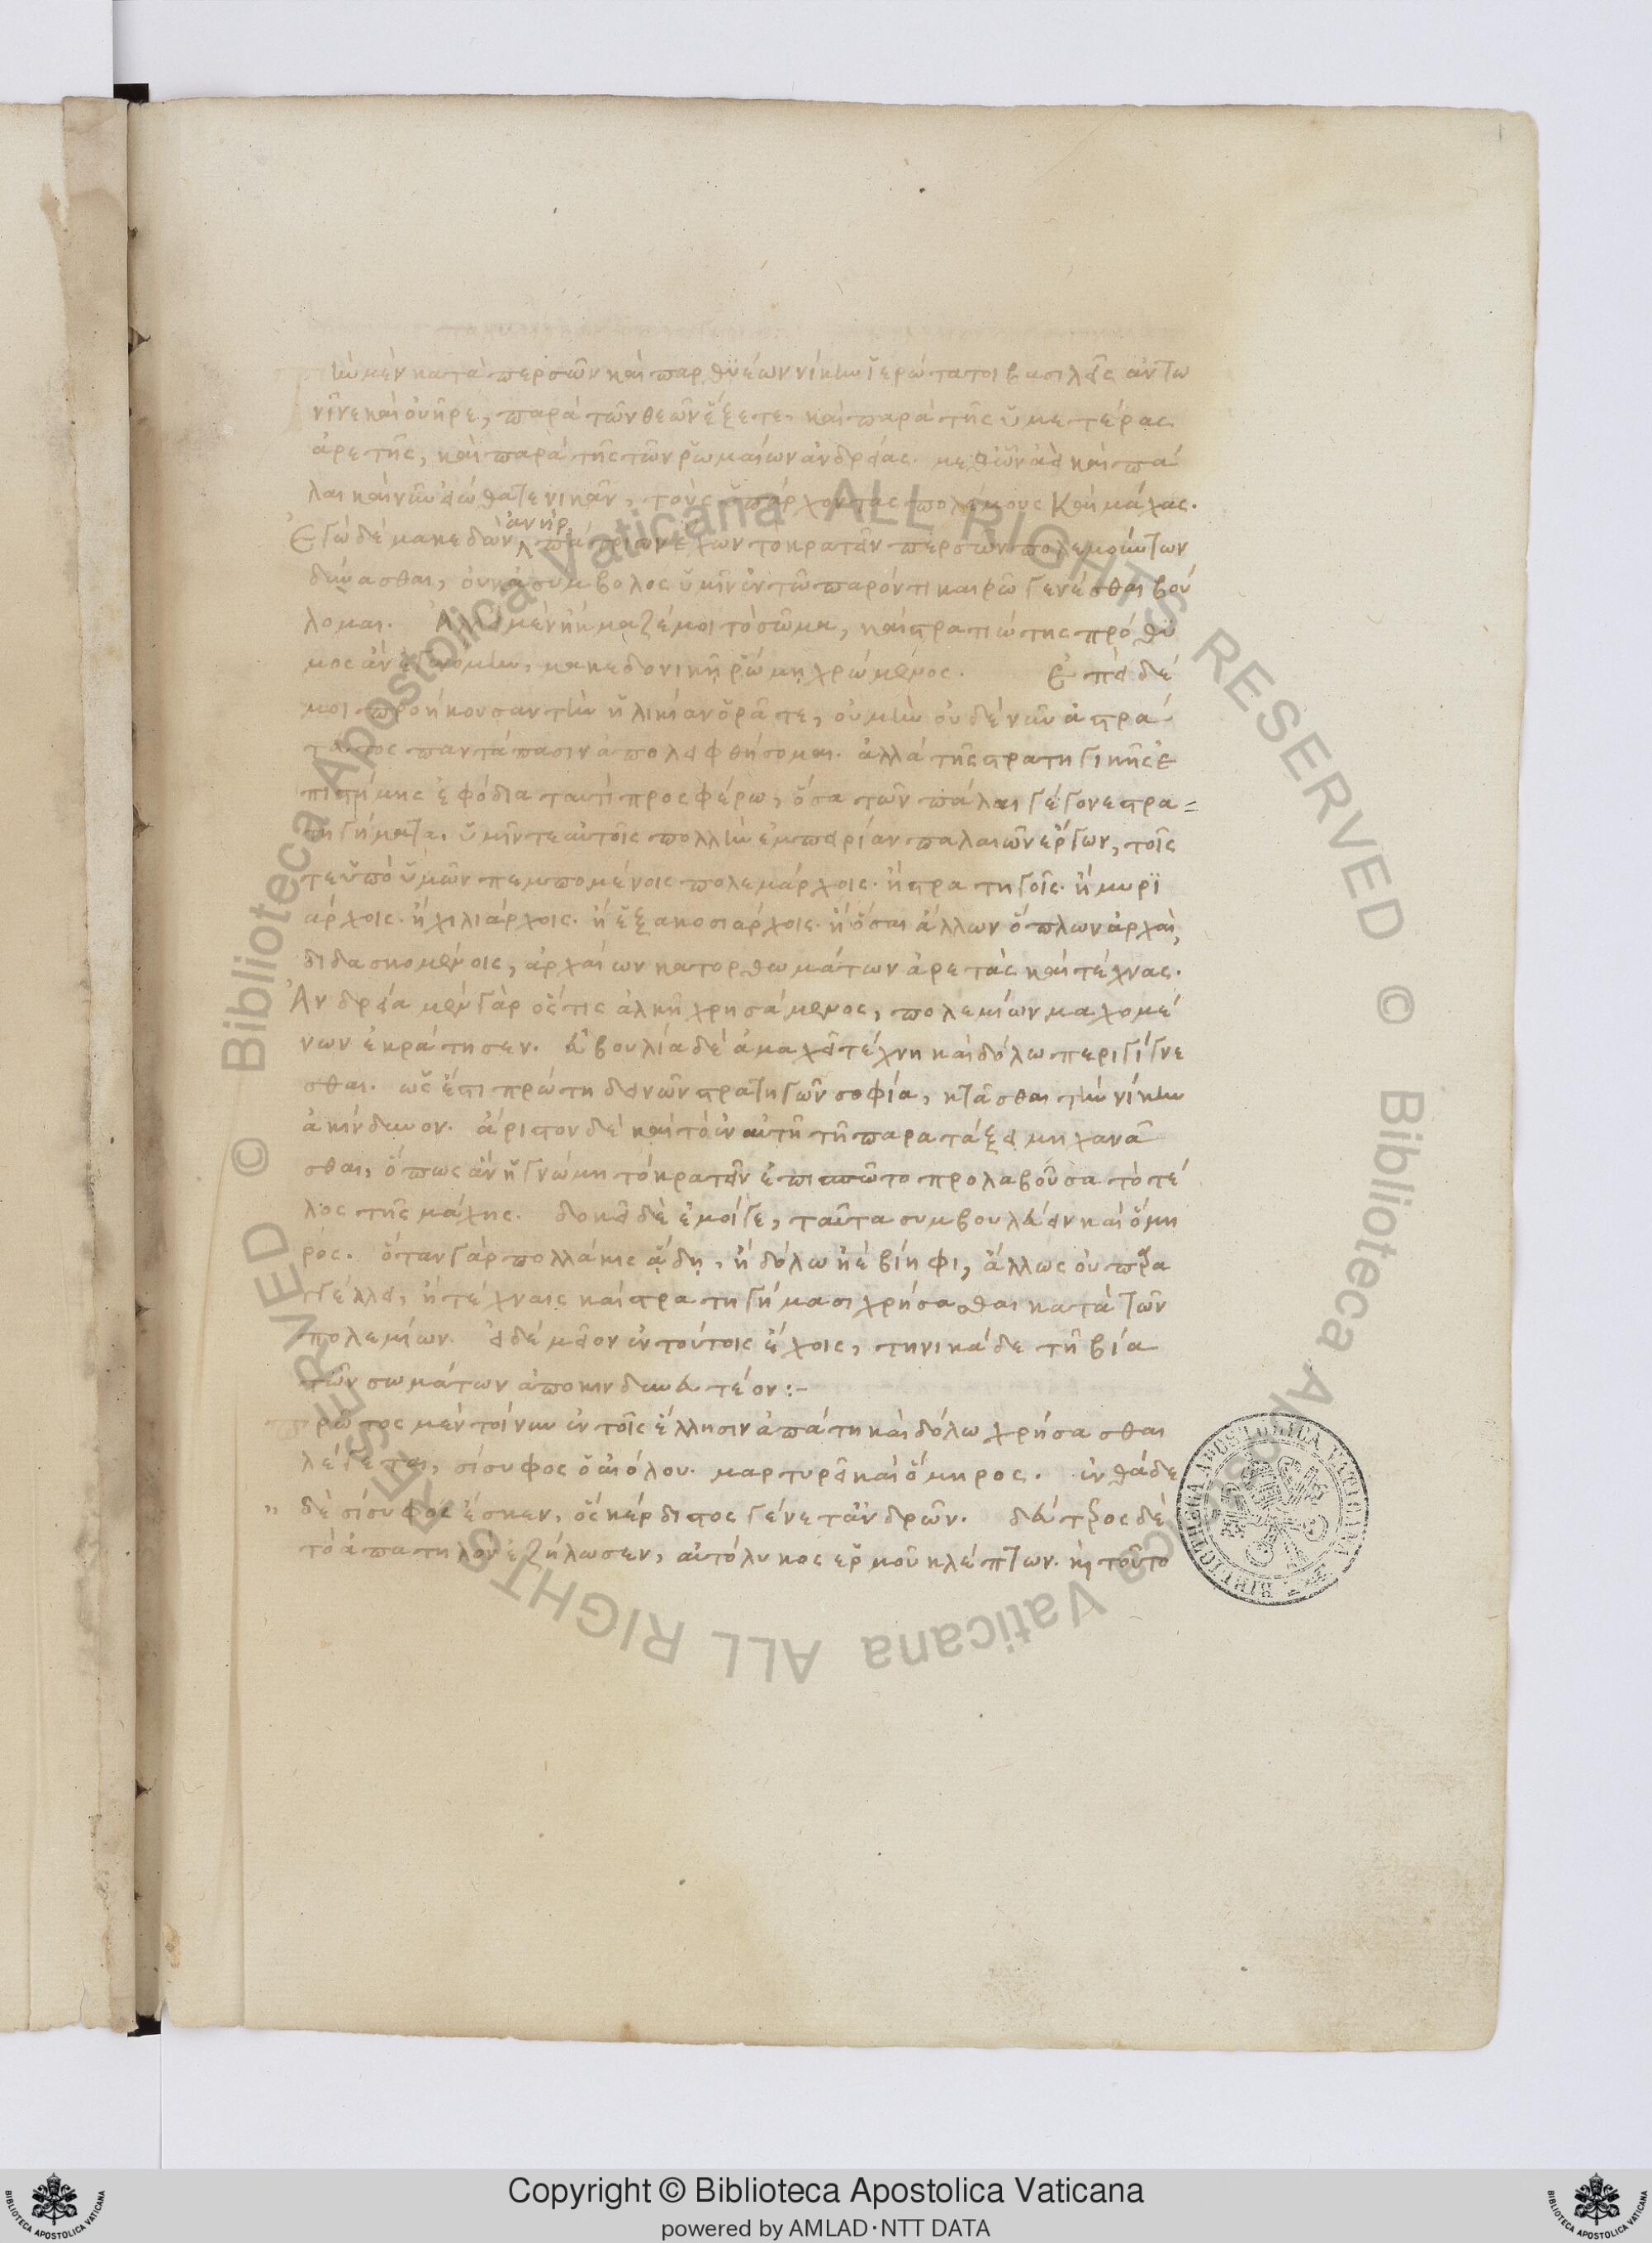 τὴν μὲν κατὰ περσῶν καὶ παρθυαίων νίκην ἱερώτατοι βασιλεῖς ἀντω
νῖνε καὶ οὐῆρε, παρὰ τῶν θεῶν ἕξετε, καὶ παρὰ τῆς ὑμετέρας
ἀρετῆς, καὶ παρὰ τῆς τῶν ῥωμαίων ἀνδρείας. μεθ' ὧν ἀεὶ καὶ πά
λαι καὶ νῦν εἰώθατε νικᾶν, τοὺς ὑπάρχοντας πολέμους καὶ μάχας.
Ἐγὼ δὲ μακεδὼν ἀνὴρ πάτριον ἔχων τὸ κρατεῖν περσῶν πολεμούντων
δύνασθαι, οὐκ ἀσύμβολος ὑμῖν ἐν τῶ παρόντι καιρῶ γενέσθαι βού
λομαι. Ἀλλ' εἰ μὲν ἤκμαζέ μοι τὸ σῶμα, καὶ στρατιώτης πρόθυ
μος ἂν ἐγενόμην, μακεδονικῇ ῥώμῃ χρώμενος. Ἐπεὶ δέ
μοι προήκουσαν τὴν ἡλικίαν ὁρᾶτε, οὐ μὴν οὐδὲ νῦν ἀστρά
τευτος παντάπασιν ἀπολειφθήσομαι. ἀλλὰ τῆς στρατηγικῆς ἐ
πιστήμης ἐφόδια ταυτὶ προσφέρω, ὅσα τῶν πάλαι γέγονε στρα=
τηγήματα. ὑμῖν τε αὐτοῖς πολλὴν ἐμπειρίαν παλαιῶν ἔργων, τοῖς
τε ὑπὸ ὑμῶν πεμπομένοις πολεμάρχοις. ἢ στρατηγοῖς. ἢ μυρϊ
άρχοις. ἢ χιλιάρχοις. ἢ ἑξακοσιάρχοις. ἢ ὅσαι ἄλλων ὅπλων ἀρχαὶ,
διδασκομένοις, ἀρχαίων κατορθωμάτων ἀρετὰς καὶ τέχνας.
Ἀνδρεία μὲν γὰρ ὅστις ἀλκῆ χρησάμενος, πολεμίων μαχομέ
νων ἐκράτησεν. εὐβουλία δὲ ἀμαχεὶ τέχνη καὶ δόλω περιγίγνε
σθαι. ὡς ἔστι πρώτη δεινῶν στρατηγῶν σοφία, κτᾶσθαι τὴν νίκην
ἀκίνδυνον. ἄριστον δὲ καὶ τὸ ἐν αὐτῆ τῆ παρατάξει μηχανᾶ
σθαι, ὅπως ἂν ἡ γνώμη τὸ κρατεῖν ἐπισπῶτο προλαβοῦσα τὸ τέ
λος τῆς μάχης. δοκεῖ δὲ ἐμοίγε, ταῦτα συμβουλεύειν καὶ ὅμη
ρος. ὅταν γὰρ πολλάκις ᾄδῃ, ἢ δόλω ἠὲ βίηφι, ἄλλως οὐ παρα
γγέλλει, ἢ τέχναις καὶ στρατηγήμασι χρήσασθαι κατὰ τῶν
πολεμίων. εἰ δὲ μεῖον ἐν τούτοις ἔχοις, τηνικάδε τῆ βία
τῶν σωμάτων ἀποκινδυνευτέον:-
πρῶτος μὲν τοίνυν ἐν τοῖς ἕλλησιν ἀπάτη καὶ δόλω χρήσασθαι
λέγεται, σίσυφος ὁ αἰόλου. μαρτυρεῖ καὶ ὅμηρος. ἐνθάδε
" δὲ σίσυφος ἔσκεν, ὃς κέρδιστος γένετ' ἀνδρῶν. δεύτερος δὲ
τὸ ἀπατηλὸν ἐζήλωσεν, αὐτόλυκος ἑρμοῦ κλέπτων. καὶ τοῦτο
BIBLIOTHECA APOSTOLICA VATICANA
© Biblioteca Apostolica Vaticana ALL RIGHTS RESERVED © Biblioteca Apostolica Vaticana ALL RIGHTS RESERVED
Copyright © Biblioteca Apostolica Vaticana
powered by AMLAD·NTT DATA